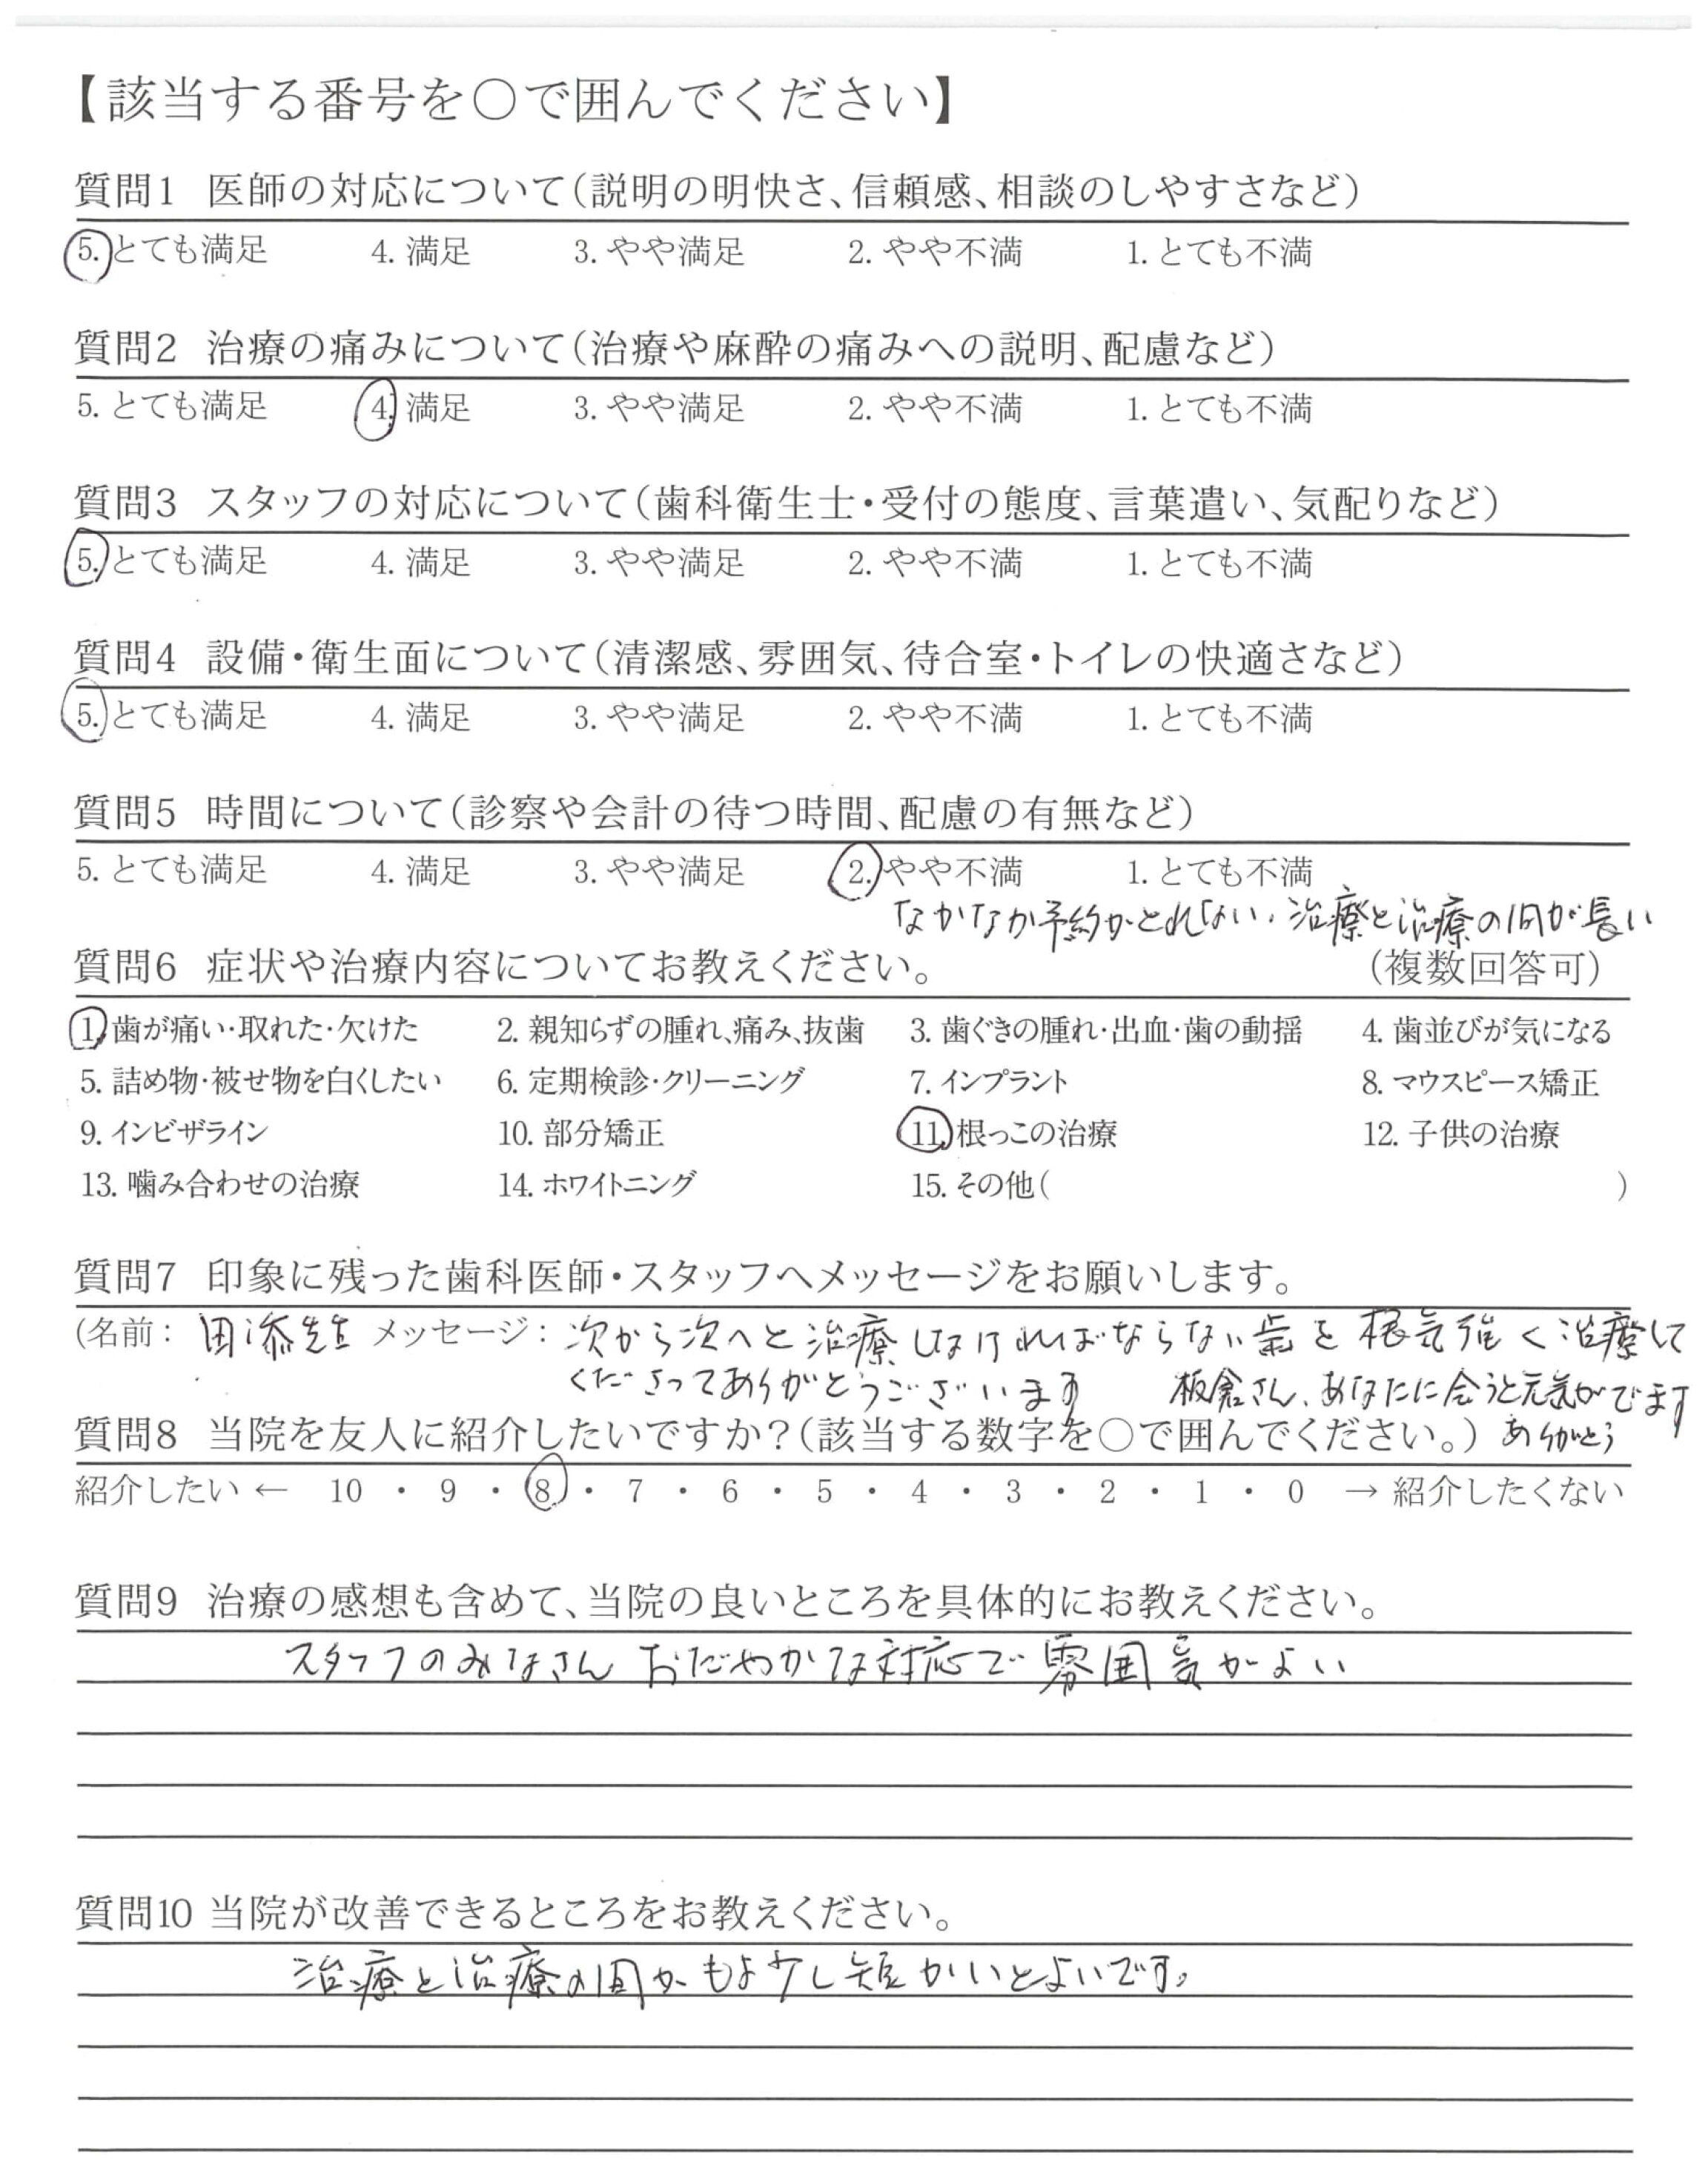 【該当する番号を○で囲んでください】
質問1 医師の対応について(説明の明快さ、信頼感、相談のしやすさなど)
5. とても満足 4. 満足 3. やや満足 2. やや不満 1. とても不満
質問2 治療の痛みについて(治療や麻酔の痛みへの説明、配慮など)
5. とても満足 4. 満足 3. やや満足 2. やや不満 1. とても不満
質問3 スタッフの対応について(歯科衛生士・受付の態度、言葉遣い、気配りなど)
5. とても満足 4. 満足 3. やや満足 2. やや不満 1. とても不満
質問4 設備・衛生面について(清潔感、雰囲気、待合室・トイレの快適さなど)
5. とても満足 4. 満足 3. やや満足 2. やや不満 1. とても不満
質問5 時間について(診察や会計の待つ時間、配慮の有無など)
5. とても満足 4. 満足 3. やや満足 2. やや不満 1. とても不満
なかなか予約がとれない、治療と治療の間が長い
質問6 症状や治療内容についてお教えください。 (複数回答可)
1. 歯が痛い・取れた・欠けた 2. 親知らずの腫れ、痛み、抜歯 3. 歯ぐきの腫れ・出血・歯の動揺 4. 歯並びが気になる
5. 詰め物・被せ物を白くしたい 6. 定期検診・クリーニング 7. インプラント 8. マウスピース矯正
9. インビザライン 10. 部分矯正 11. 根っこの治療 12. 子供の治療
13. 噛み合わせの治療 14. ホワイトニング 15. その他( )
質問7 印象に残った歯科医師・スタッフへメッセージをお願いします。
(名前: 田添先生 メッセージ: 次から次へと治療しなければならない歯を根気強く治療して
くださってありがとうございます 板倉さん、あなたに会うと元気がでます
質問8 当院を友人に紹介したいですか?(該当する数字を○で囲んでください。) ありがとう
紹介したい ← 10 ・ 9 ・ 8 ・ 7 ・ 6 ・ 5 ・ 4 ・ 3 ・ 2 ・ 1 ・ 0 → 紹介したくない
質問9 治療の感想も含めて、当院の良いところを具体的にお教えください。
スタッフのみなさん おだやかな対応で雰囲気がよい
質問10 当院が改善できるところをお教えください。
治療と治療の間がもう少し短かいとよいです。